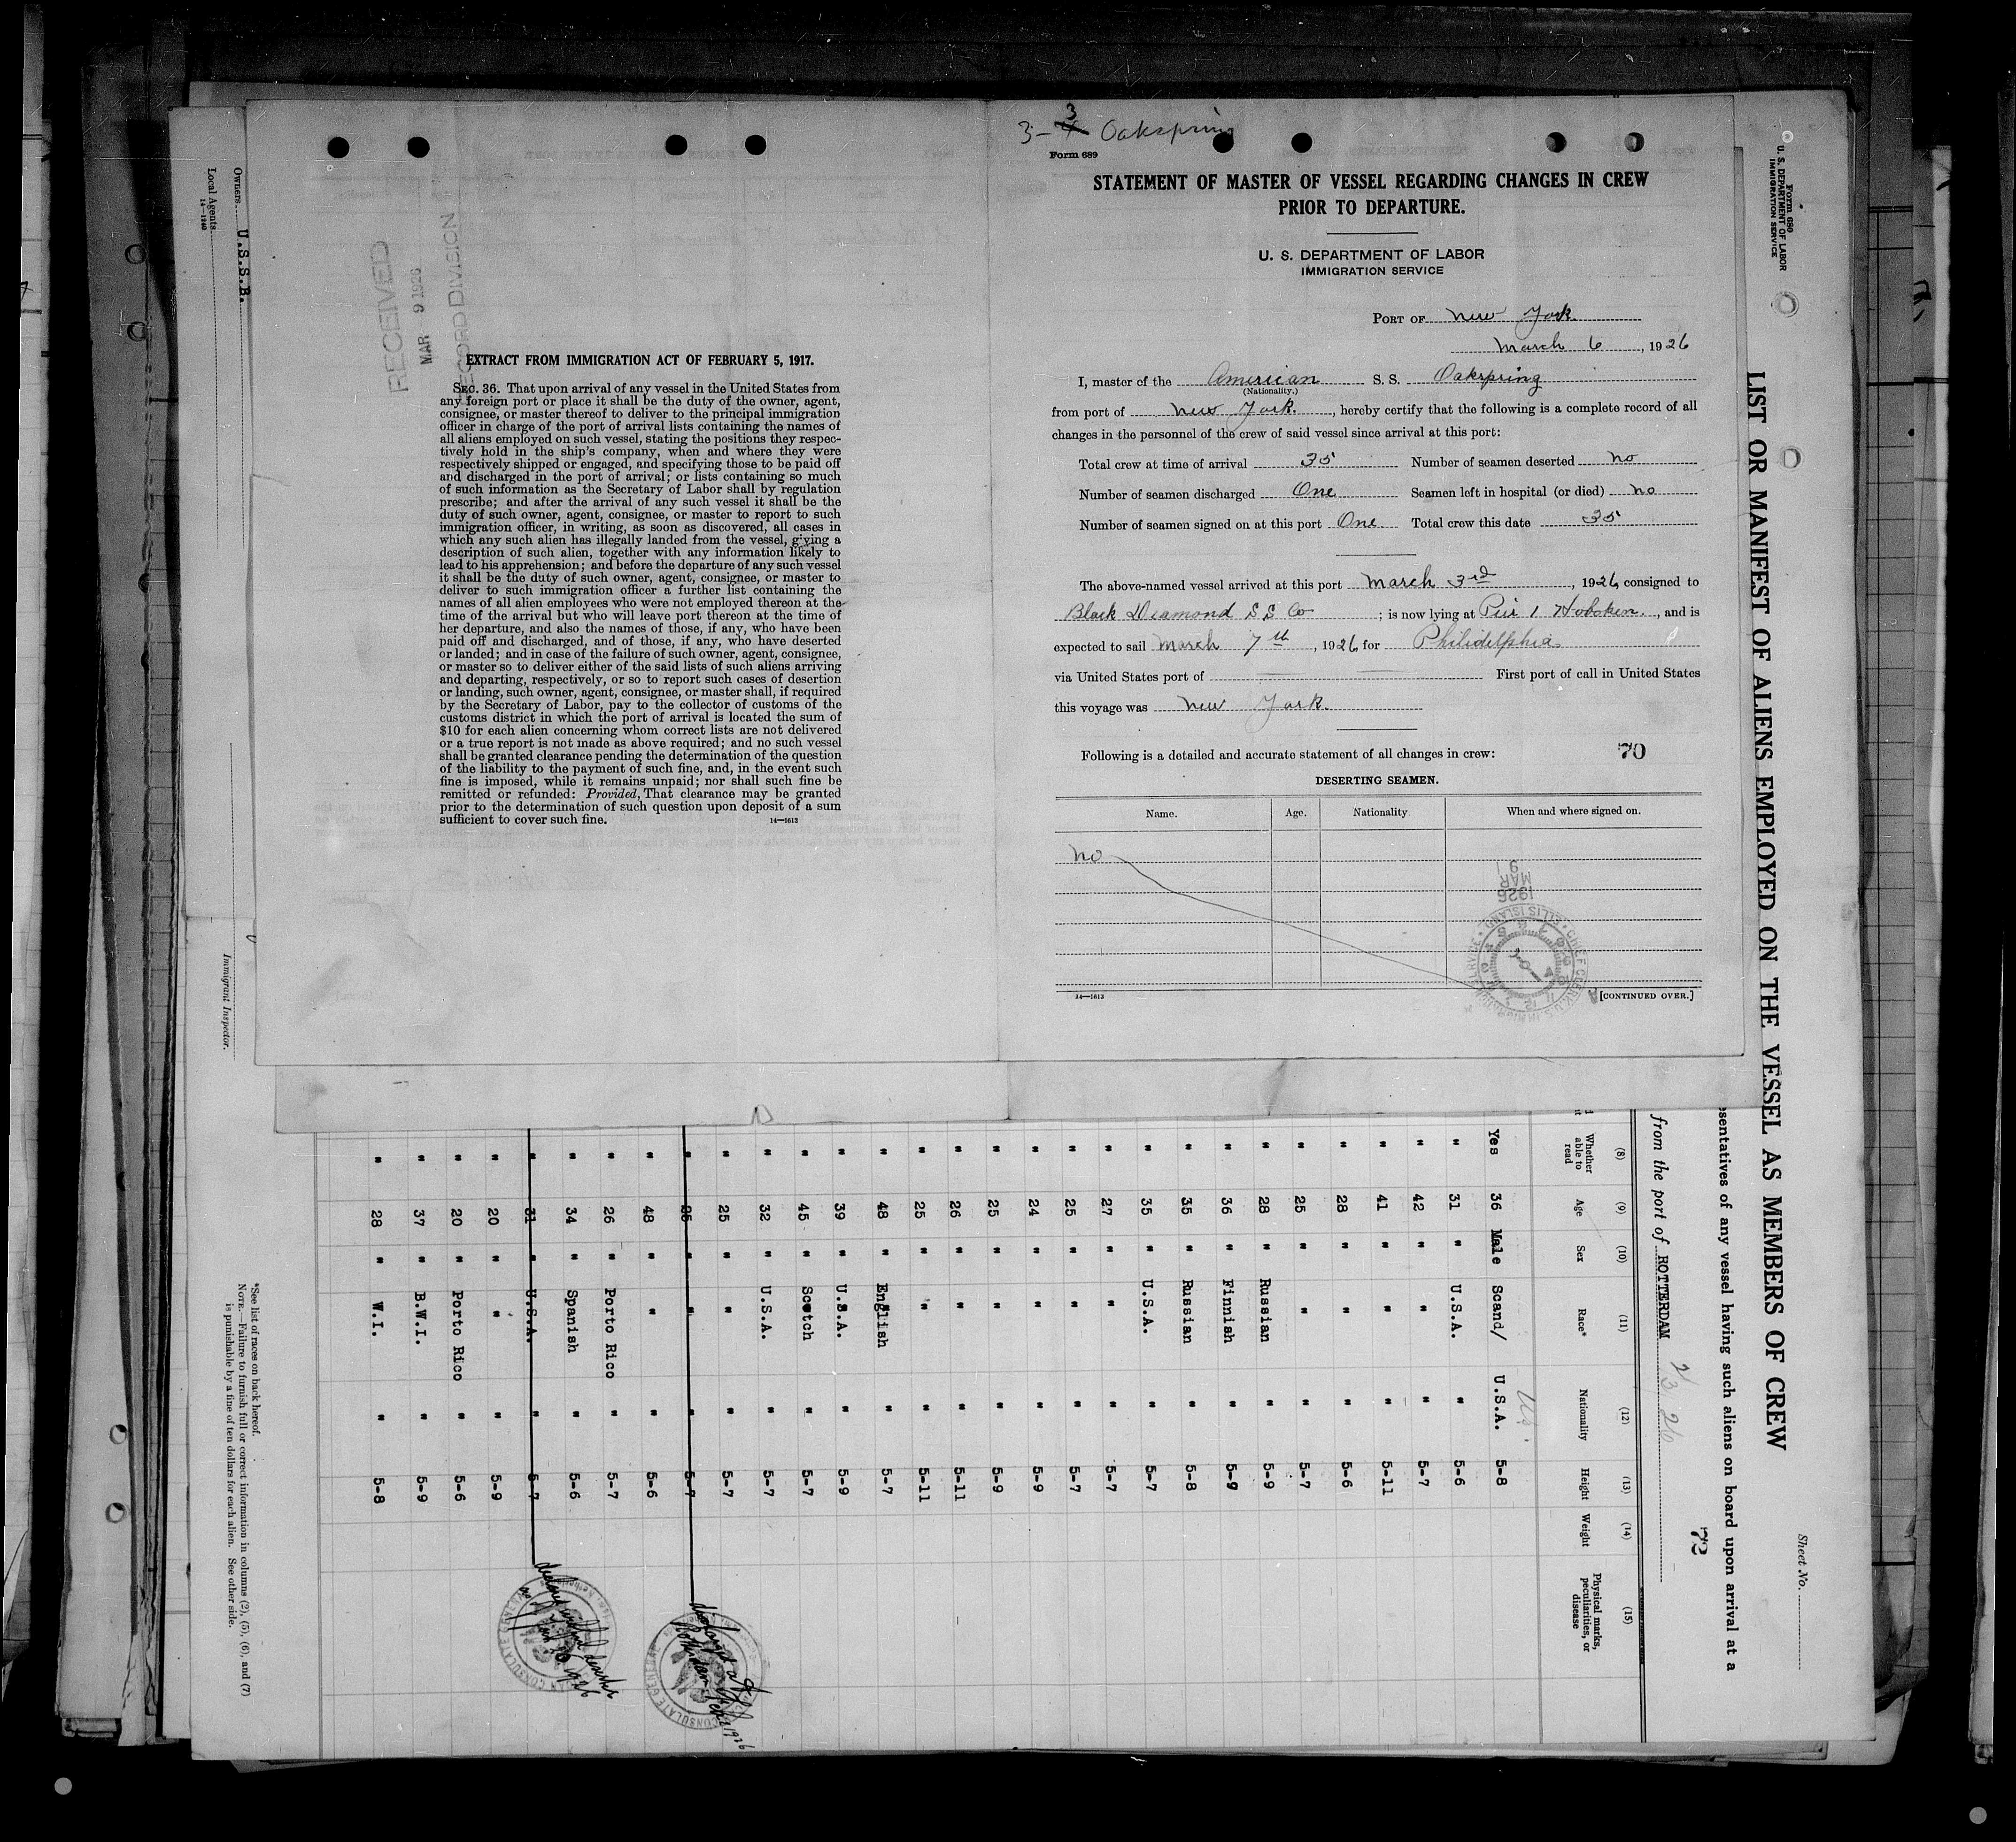 3-3 Oakspring
Form 689
STATEMENT OF MASTER OF VESSEL REGARDING CHANGES IN CREW
PRIOR TO DEPARTURE.
U. S. DEPARTMENT OF LABOR
IMMIGRATION SERVICE
PORT OF New York
March 6, 1926
I, master of the American S. S. Oakspring
(Nationality.)
from port of New York, hereby certify that the following is a complete record of all
changes in the personnel of the crew of said vessel since arrival at this port:
Total crew at time of arrival 35 Number of seamen deserted no
Number of seamen discharged One Seamen left in hospital (or died) no
Number of seamen signed on at this port One Total crew this date 35
The above-named vessel arrived at this port March 3rd, 1926, consigned to
Black Diamond S S Co; is now lying at Peir 1 Hoboken, and is
expected to sail March 7th, 1926 for Philidelphia
via United States port of First port of call in United States
this voyage was New York
Following is a detailed and accurate statement of all changes in crew: 70
DESERTING SEAMEN.
Name. Age. Nationality When and where signed on.
no
1926
MAR 9
14—1613 [CONTINUED OVER.]
RECEIVED
MAR 9 1926
RECORD DIVISION
EXTRACT FROM IMMIGRATION ACT OF FEBRUARY 5, 1917.
SEC. 36. That upon arrival of any vessel in the United States from
any foreign port or place it shall be the duty of the owner, agent,
consignee, or master thereof to deliver to the principal immigration
officer in charge of the port of arrival lists containing the names of
all aliens employed on such vessel, stating the positions they respec-
tively hold in the ship's company, when and where they were
respectively shipped or engaged, and specifying those to be paid off
and discharged in the port of arrival; or lists containing so much
of such information as the Secretary of Labor shall by regulation
prescribe; and after the arrival of any such vessel it shall be the
duty of such owner, agent, consignee, or master to report to such
immigration officer, in writing, as soon as discovered, all cases in
which any such alien has illegally landed from the vessel, giving a
description of such alien, together with any information likely to
lead to his apprehension; and before the departure of any such vessel
it shall be the duty of such owner, agent, consignee, or master to
deliver to such immigration officer a further list containing the
names of all alien employees who were not employed thereon at the
time of the arrival but who will leave port thereon at the time of
her departure, and also the names of those, if any, who have been
paid off and discharged, and of those, if any, who have deserted
or landed; and in case of the failure of such owner, agent, consignee,
or master so to deliver either of the said lists of such aliens arriving
and departing, respectively, or so to report such cases of desertion
or landing, such owner, agent, consignee, or master shall, if required
by the Secretary of Labor, pay to the collector of customs of the
customs district in which the port of arrival is located the sum of
$10 for each alien concerning whom correct lists are not delivered
or a true report is not made as above required; and no such vessel
shall be granted clearance pending the determination of the question
of the liability to the payment of such fine, and, in the event such
fine is imposed, while it remains unpaid; nor shall such fine be
remitted or refunded: Provided, That clearance may be granted
prior to the determination of such question upon deposit of a sum
sufficient to cover such fine. 14—1613
Form 680
U. S. DEPARTMENT OF LABOR
IMMIGRATION SERVICE
Sheet No.
LIST OR MANIFEST OF ALIENS EMPLOYED ON THE VESSEL AS MEMBERS OF CREW
esentatives of any vessel having such aliens on board upon arrival at a
72
from the port of ROTTERDAM 2/3 26
(8) (9) (10) (11) (12) (13) (14) (15)
Whether able to read Age Sex Race* Nationality Height Weight Physical marks, peculiarities, or disease
Yes 36 Male Scand/ U.S.A. 5-8
" 31 " U.S.A. " 5-6
" 42 " " " 5-7
" 41 " " " 5-11
" 28 " " " 5-6
" 25 " " " 5-7
" 28 " Russian " 5-9
" 36 " Finnish " 5-9
" 35 " Russian " 5-8
" 35 " U.S.A. " 5-7
" 27 " " " 5-7
" 25 " " " 5-7
" 24 " " " 5-9
" 25 " " " 5-9
" 26 " " " 5-11
" 25 " " " 5-11
" 48 " English " 5-7
" 39 " U.S.A. " 5-9
" 45 " Scotch " 5-7
" 32 " U.S.A. " 5-7
" 25 " " " 5-7
" " " " 5-7 discharged at Rotterdam 1926
" 48 " " " 5-6
" 26 " Porto Rico " 5-7
" 34 " Spanish " 5-6
" 31 " U.S.A. " 5-7
" 20 " " " 5-9
" 20 " Porto Rico " 5-6
" 37 " B.W.I. " 5-9
" 28 " W.I. " 5-8
*See list of races on back hereof.
NOTE.—Failure to furnish full or correct information in columns (2), (5), (6), and (7)
is punishable by a fine of ten dollars for each alien. See other side.
Owners U.S.S.B.
Local Agents
14—1240
Immigrant Inspector.